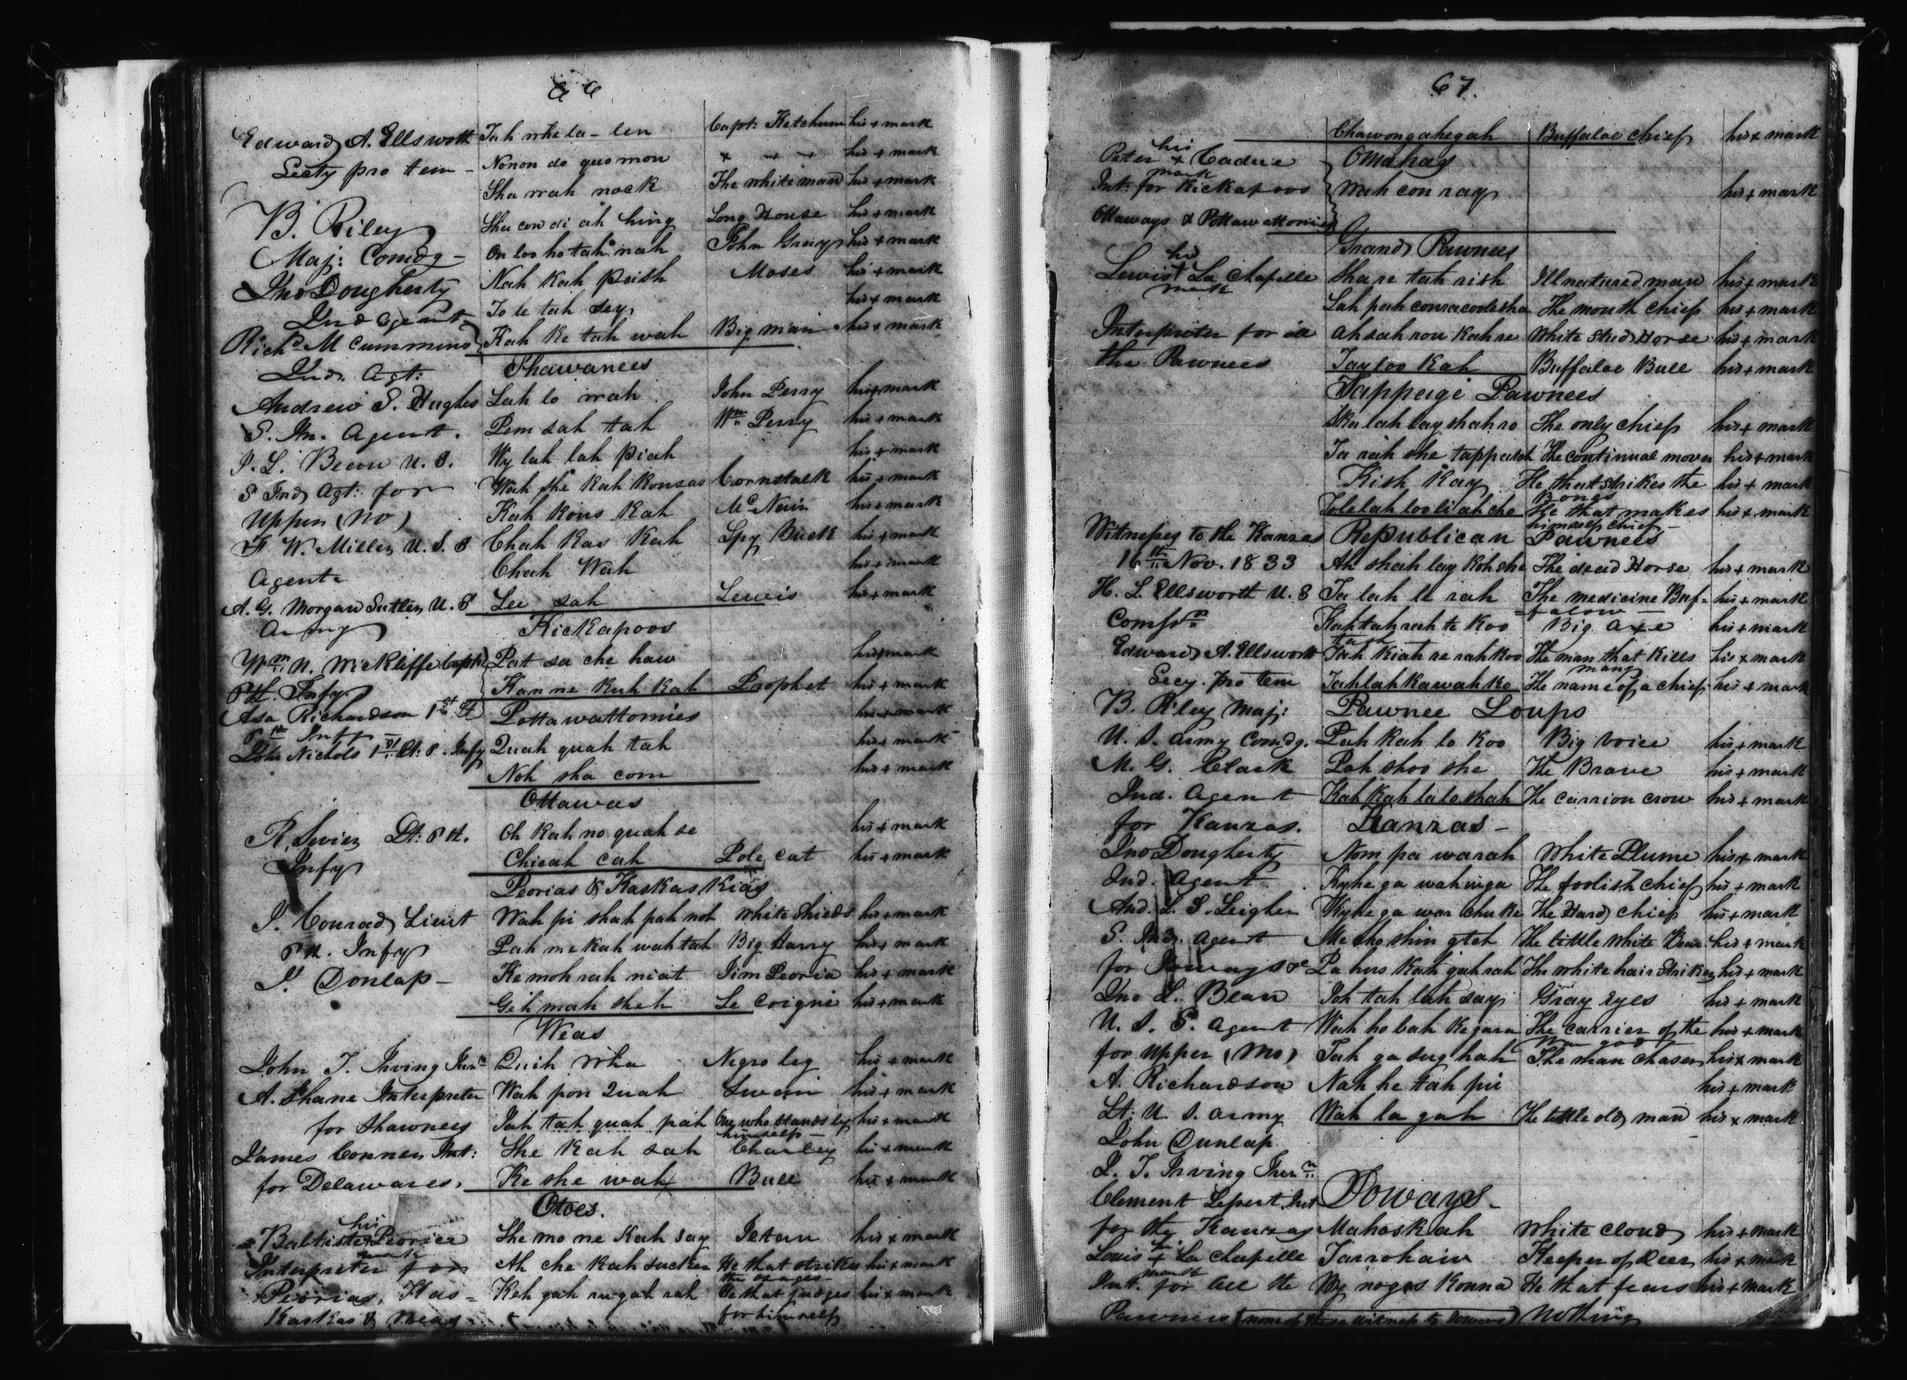 66
Edward A. Ellsworth Tah whe la - len Capt: Ketchum his + mark
Secty pro tem - Nonon do quo mon × × × his + mark
Sha wah nock The white man his + mark
B. Riley Sha con di ah hing Long House his + mark
Maj: Comdg - On loo ho tah nah John Gray his + mark
Jno Dougherty Nah kah peish Moses his + mark
Ind agent To le tah sey his + mark
Richd M Cummins Kah ke tah wah Big man his + mark
Ind. Agt: Shawanees
Andrew S. Hughes Lah lo wah John Perry his + mark
S. In. Agent. Pem sah tah Wm Perry his + mark
J. L. Bean U. S. Wy lah lah piah his + mark
S Ind Agt: for Wah she kah konsas Cornstalk his + mark
Upper (Mo) Kah kous kah McNair his + mark
F W. Miller U. S. S Chah kas kah Spy Buck his + mark
Agent Chah Wah his + mark
A. G. Morgan Sutler U. S Lee sah Lewis his + mark
Army Kickapoos
Wm N. Wickliffe Capt Pat sa che haw his + mark
6th Infy Kan ne kuh kah Prophet his + mark
Asa Richardson 1st Lt Pottawattomies his + mark
6th Infy
John Nichols 1st Lt. 6. Infy Quah quah tah his + mark
Noh sha com his + mark
Ottawas
Lt. 6th. Oh kah no quah se his + mark
Infy Chicah cah Pole cat his + mark
Peorias & Kaskaskias
J. Conrad Lieut Wah pi shah pah noh white Shields his + mark
6th. Infy Pah me kah wah tah Big Harry his + mark
J. Donlap - Ke moh rah niat Jim Peoria his + mark
Geh mah sheh Le Coigne his + mark
Weas
John T. Irving Junr Quih wha Negro leg his + mark
A. Shane Interpreter Wah pon Quah Swan his + mark
for Shawnees Tah tah quah pah One who stands by his + mark
himself -
James Conner Int: She kah sah Charley his + mark
for Delawares. Ke she wah Bull his + mark
Otoes.
his
Baltiste Peoria She mo ne kah say Ietan his + mark
mark
Interpreter for Ah che kah sucker He that strikes his + mark
the osages
Peorias, Kas - Keh gah rugah rah He that judges his + mark
Kaskas & Weas for himself
67.
Chawongahegah Buffaloe chief his + mark
his
Peter + Cadue Omahas
mark
Int: for Kickapoos Wah con ray his + mark
Ottaways & Pottawattomies
Grand Pawnees
his
Lewis + La Chapelle Sha re tah rish Ill natured man his + mark
mark
Lah pahconsacoolesha The mouth chief his + mark
Interpreter for all Ah sah rou kahre White Stud Horse his + mark
the Pawnees Tay loo kah Buffaloe Bull his + mark
Tappeige Pawnees
Ska lah lay shah ro The only chief his + mark
Ta rah she tappash The continual mover his + mark
Kish kay He that strikes the his + mark
Bongs
Tole lah loo li ah che He that makes his + mark
himself chief -
Witnesses to the Kanzas Republican Pawnees
16th Nov. 1833 Ah shah lay koh sha The dead Horse his + mark
H. L. Ellsworth U. S Ta lah le rah The medicine Buf - his + mark
falow -
Comsr Kah tah rah te koo Big Axe his + mark
Edward A. Ellsworth Tah kiah re rah koo The man that kills his + mark
many
Secy. pro tem Tah lah kawah ko The name of a chief his + mark
B. Riley Maj: Pawnee Loups
U. S. army Comdg. Pah kah lo koo Big Voice his + mark
M. G. Clark Pah shoo she The Brave his + mark
Ind. Agent Kah kah la lo shah The Carrion crow his + mark
for Kanzas. Kanzas -
Jno Dougherty Nom pa warah White Plume his + mark
Ind. Agent. Kyhe ga wah inga The foolish chief his + mark
And. L. S. Leigher Kyhe ga war chu ke The Hard chief his + mark
S. Ind. Agent Me cho shin gteh The little white Bear his + mark
for Ioways &c Pa hus kah gah rah The white hair striker his + mark
Jno L. Bean Joh tah lah say Gray Eyes his + mark
U. S. S. Agent Wah ho bah ke gara The carrier of the his + mark
War god
for Upper (Mo) Tah ga sug hah The man chaser his + mark
A. Richardson Nah he tah pu his + mark
Lt: U. S. army Wah la gah The little old man his + mark
John Dunlap
J. T. Irving Junr.
Clement Lepert. Int Ioways -
for the Kanzas Mahoskah White cloud his + mark
Louis + La Chapelle Tarrohaw Keeper of Deer his + mark
mark
Int. for all the Wy noges konna He that fears his + mark
Pawnees (none of these witness to Ioways) Nothing